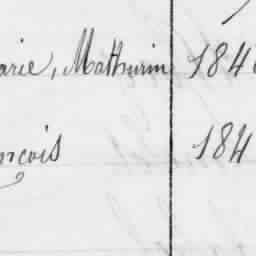 arie, Mathurin 184
ncois 184